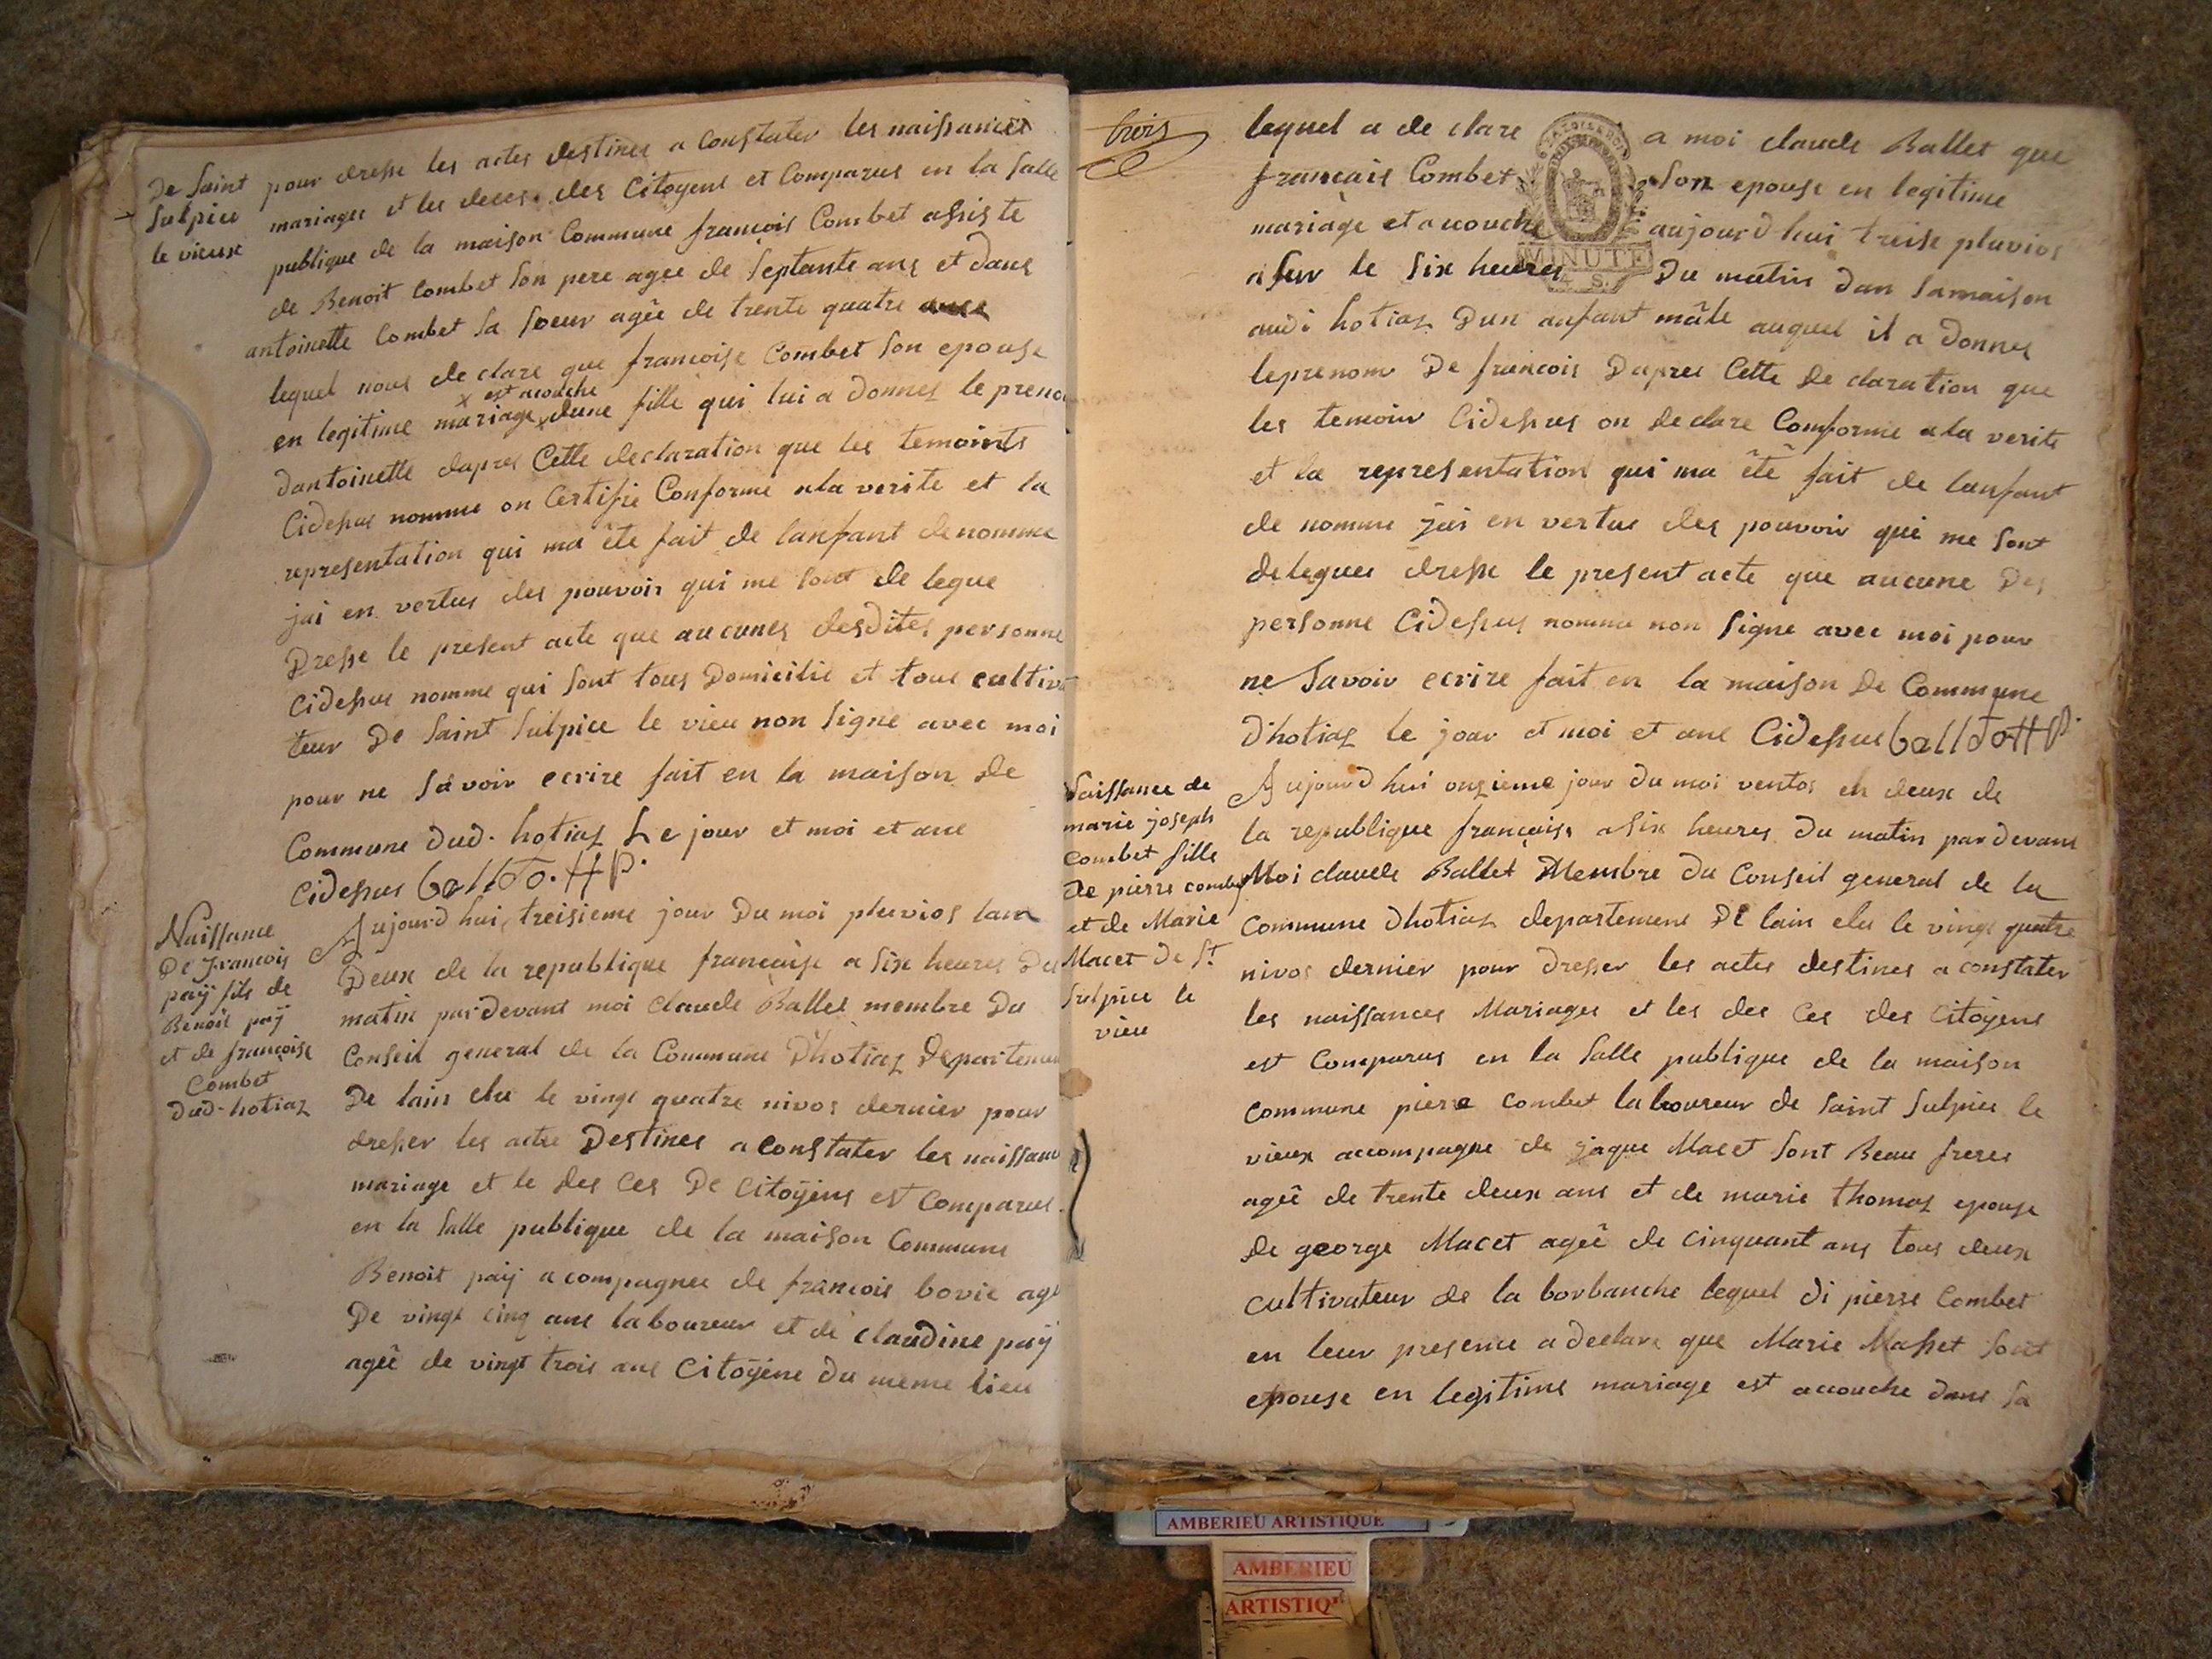 De Saint
Sulpice
le vieux
pour dresse les actes destinee a Constater les naissances
mariages et les deces des Citoyens et Comparus en la Salle
publique de la maison Commune françois Combet assiste
de Benoit Combet Son pere agee de Septante ans et dans
antoinette Combet Sa Soeur agêe de trente quatre
lequel nous de clare que francoise Combet Son epouse
x est acouche
en legitime mariage x dune fille qui lui a donnes le preno
dantoinette dapres Cette declaration que les temoints
Cidessus nomme on Certifie Conforme ala verite et la
representation qui ma êtê fait de lanfant denomme
jai en vertus des pouvoir qui me Sont de legue
Dresse le present acte que aucunes desdites personne
Cidessus nomme qui Sont tous Domicilie et tous cultiva
teur De Saint Sulpice le vieu non Signe avec moi
pour ne Savoir ecrire fait en la maison de
Commune dud. hotiaz Le jour et moi et ane
Cidessus
Naissance
De francois
paÿ fils de
Benoit paÿ
et de françoise
Combet
dud. hotiaz
Aujourd hui, treisieme jour Du moi pluvios lan
Deux de la republique francaise a Six heures Du
matin pardevant moi Claude Ballet membre Du
Conseil general de la Commune Dhotiaz Departemen
De lain elu le vingt quatre nivos dernier pour
dresser les actre Destines a Constater les naissanc
mariage et le des Ces De Citoÿens est Comparus
en la Salle publique de la maison Commune
Benoit paÿ acompagnee de francois bovie age
De vingt cinq ans laboureur et de claudine paÿ
agêe de vingt trois ans Citoÿene du meme lieu
trois
lequel a de clare a moi claude Ballet que
francais Combet Son epouse en legitime
mariage et acouche aujourd hui treise pluvios
a Sur le Six heures Du matin dan Samaison
audi hotiaz Dun anfant mâle auquel il a donnes
leprenom De francois Dapres Cette De claration que
les temoin Cidessus on declare Conforme ala verite
et la representation qui ma êtê fait de lanfant
de nomme jai en vertus des pouvoir qui me Sont
delegues dresse le present acte que aucune Des
personne Cidessus nomme non Signe avec moi pour
ne Savoir ecrire fait en la maison De Commune
D'hotiaz le jour et moi et ane Cidessus
MINUTE
4 S.
Naissance de
marie joseph
Combet fille
De pierre combet
et de Marie
Macet De St
Sulpice le
vieu
Aujourd hui onzieme jour du moi ventos en deux de
la republique française a Six heures du matin par devant
Moi claude Ballet Membre du Conseil general de la
Commune dhotiaz departement De lain elu le vingt quatre
nivos dernier pour dresser les actes destines a constater
les naissances Mariages et les des Ces des Citoÿens
est Comparus en la Salle publique de la maison
Commune pierre Combet laboureur de Saint Sulpice le
vieux accompagne de jaque Macet Sont Beau freres
ageê de trente deux ans et de marie thomas epouse
de george Macet ageê de Cinquant ans tous deux
Cultivateur de la borbanche lequel di pierre Combet
en leur presence a declare que Marie Masset Sont
epouse en legitime mariage est acouche dans Sa
AMBERIEU ARTISTIQUE
AMBERIEU
ARTISTIQ